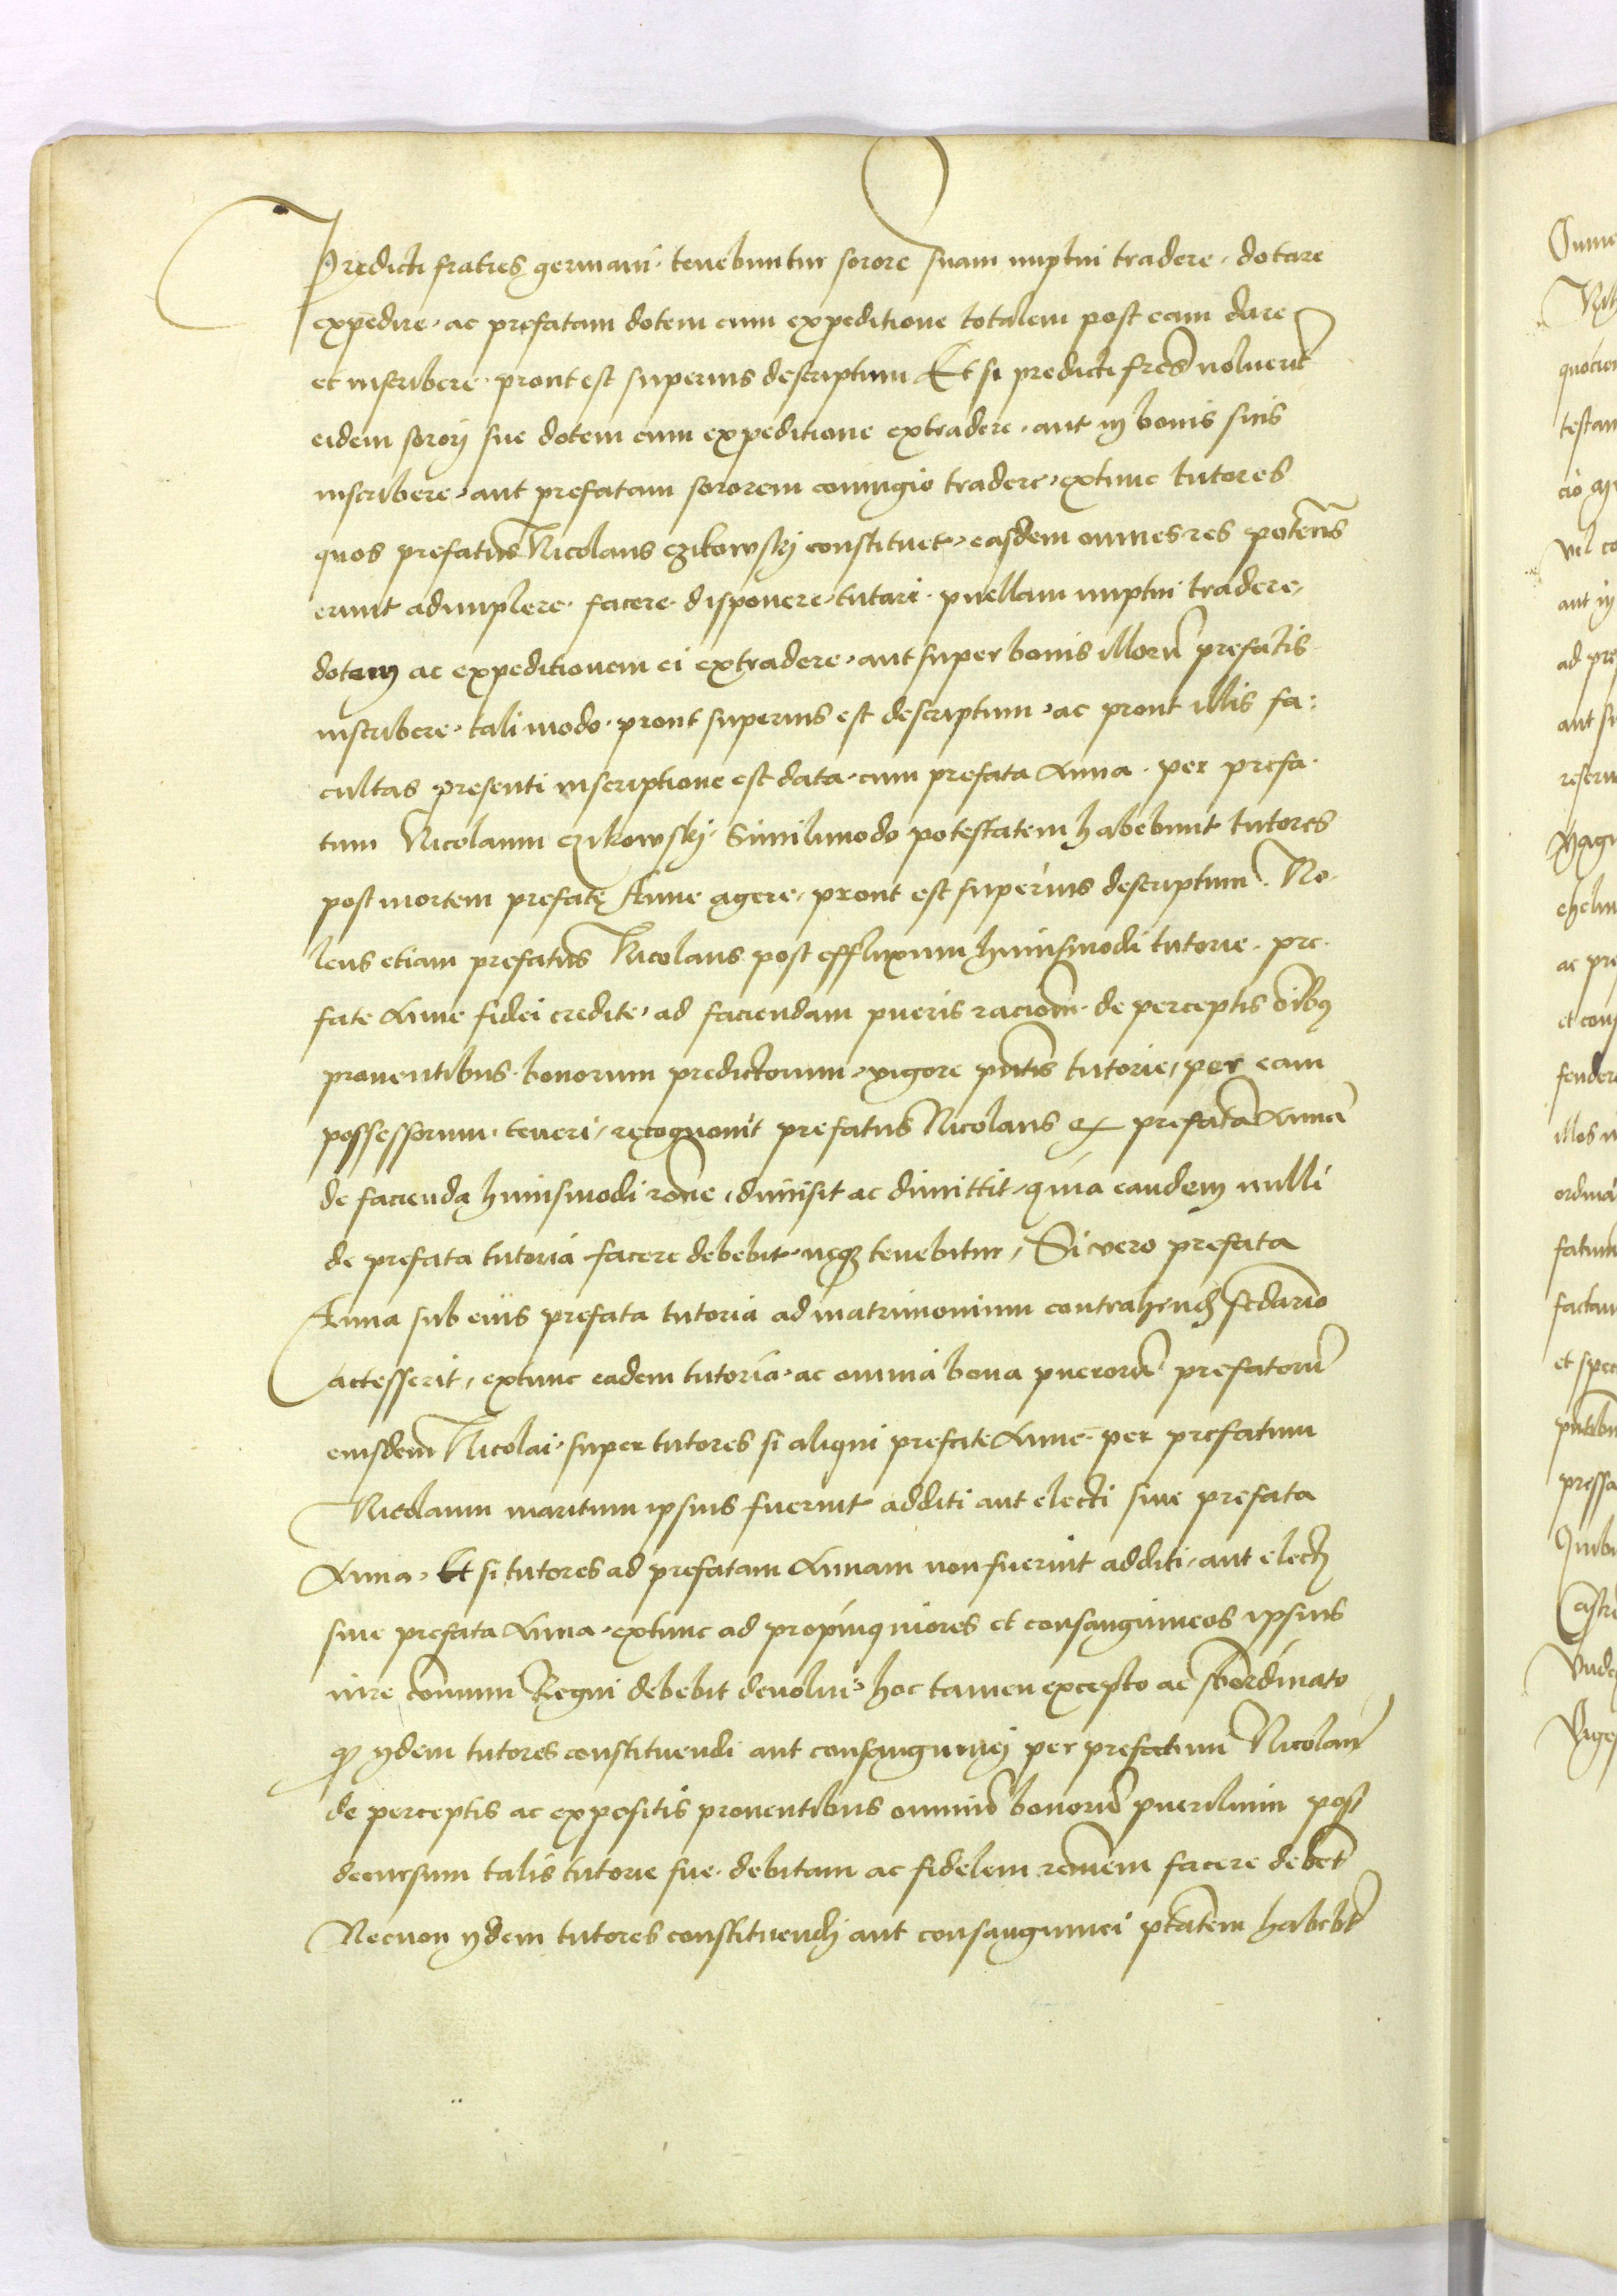 Predicti fratres germani · tenebuntur sorore suam nuptui tradere, dotare
expedire, ac prefatam dotem cum expeditione totalem post eam dare
et inscribere, prout est superius descriptum Et si predicti fres̄ noluerīt
eidem sorori sue dotem cum expeditione extradere, aut in bonis suis
inscribere, aut prefatam sororem coniugio tradere, extunc tutores
quos prefatus Nicolaus czikowskj constituet, easdem omnes res potentēs
erunt adimplere, facere, disponere, tutari, puellam nuptui tradere,
dotem ac expeditionem ei extradere, aut super bonis illorū prefatis
inscribere, tali modo, prout superius est descriptum, ac prout illis fa:
cultas presenti inscriptione est data, cum prefata Anna, per prefa-
tum Nicolaum czikowskj, Simili modo potestatem habebunt tutores
post mortem prefatę Anne agere, prout est superius descriptum. No-
lens etiam prefatus Nicolaus post effluxum huiusmodi tutorie, pre-
fate Anne fidei credite, ad faciendam pueris racionē, de perceptis oībus
prouentibus bonorum predictorum, vigore pn̄tis tutorie, per eam
possessorum, teneri, recognouit prefatus Nicolaus & prefatā Annā
de facienda huiusmodi rōne, dimisit ac dimittit, quia eandem nulli
de prefata tutoria facere debebit, neq3 tenebitur, Si vero prefata
Anna sub eius prefata tutoria ad matrimonium contrahend sc̄dario
accesserit, extunc eadem tutoria, ac omnia bona puerorū prefatorū
eiusdem Nicolai, super tutores si aliqui prefate Anne, per prefatum
Nicolaum maritum ipsius fuerint additi aut electi sine prefata
Anna, Et si tutores ad prefatam Annam non fuerint additi, aut electj
sine prefata Anna, extunc ad propinquiores et consanguineos ipsius
iure cōmuni Regni debebit deuolui, hoc tamen excepto ac sb̄ordinato
qp ijdem tutores constituendi aut consanguinej per prefatum Nicolaū
de perceptis ac expositis prouentibus omniū bonorū puerilium post
decursum talis tutorie sue, debitam ac fidelem rōnem facere debēt
Necnon ijdem tutores constituendj aut consanguinei ptātem habebt̄